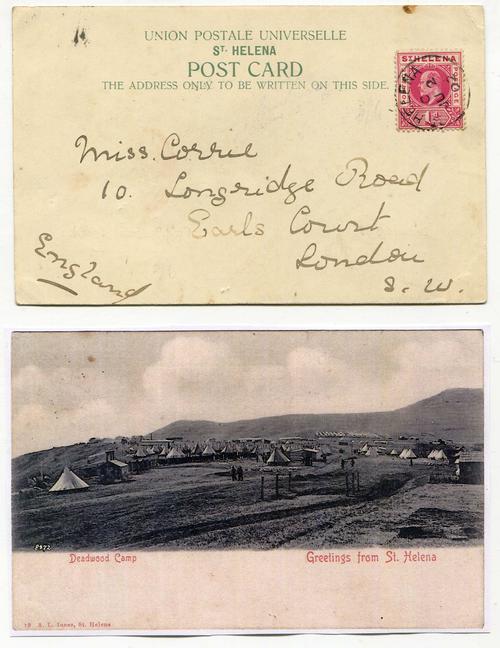 UNION POSTALE UNIVERSELLE
ST. HELENA
POST CARD
THE ADDRESS ONLY TO BE WRITTEN ON THIS SIDE.
ST HELENA
POSTAGE
1D
ST HELENA
Miss. Corrie
10. Longridge Road
Earls Court
London
S. W.
England
Deadwood Camp
Greetings from St. Helena
19 S. L. Innes, St. Helena